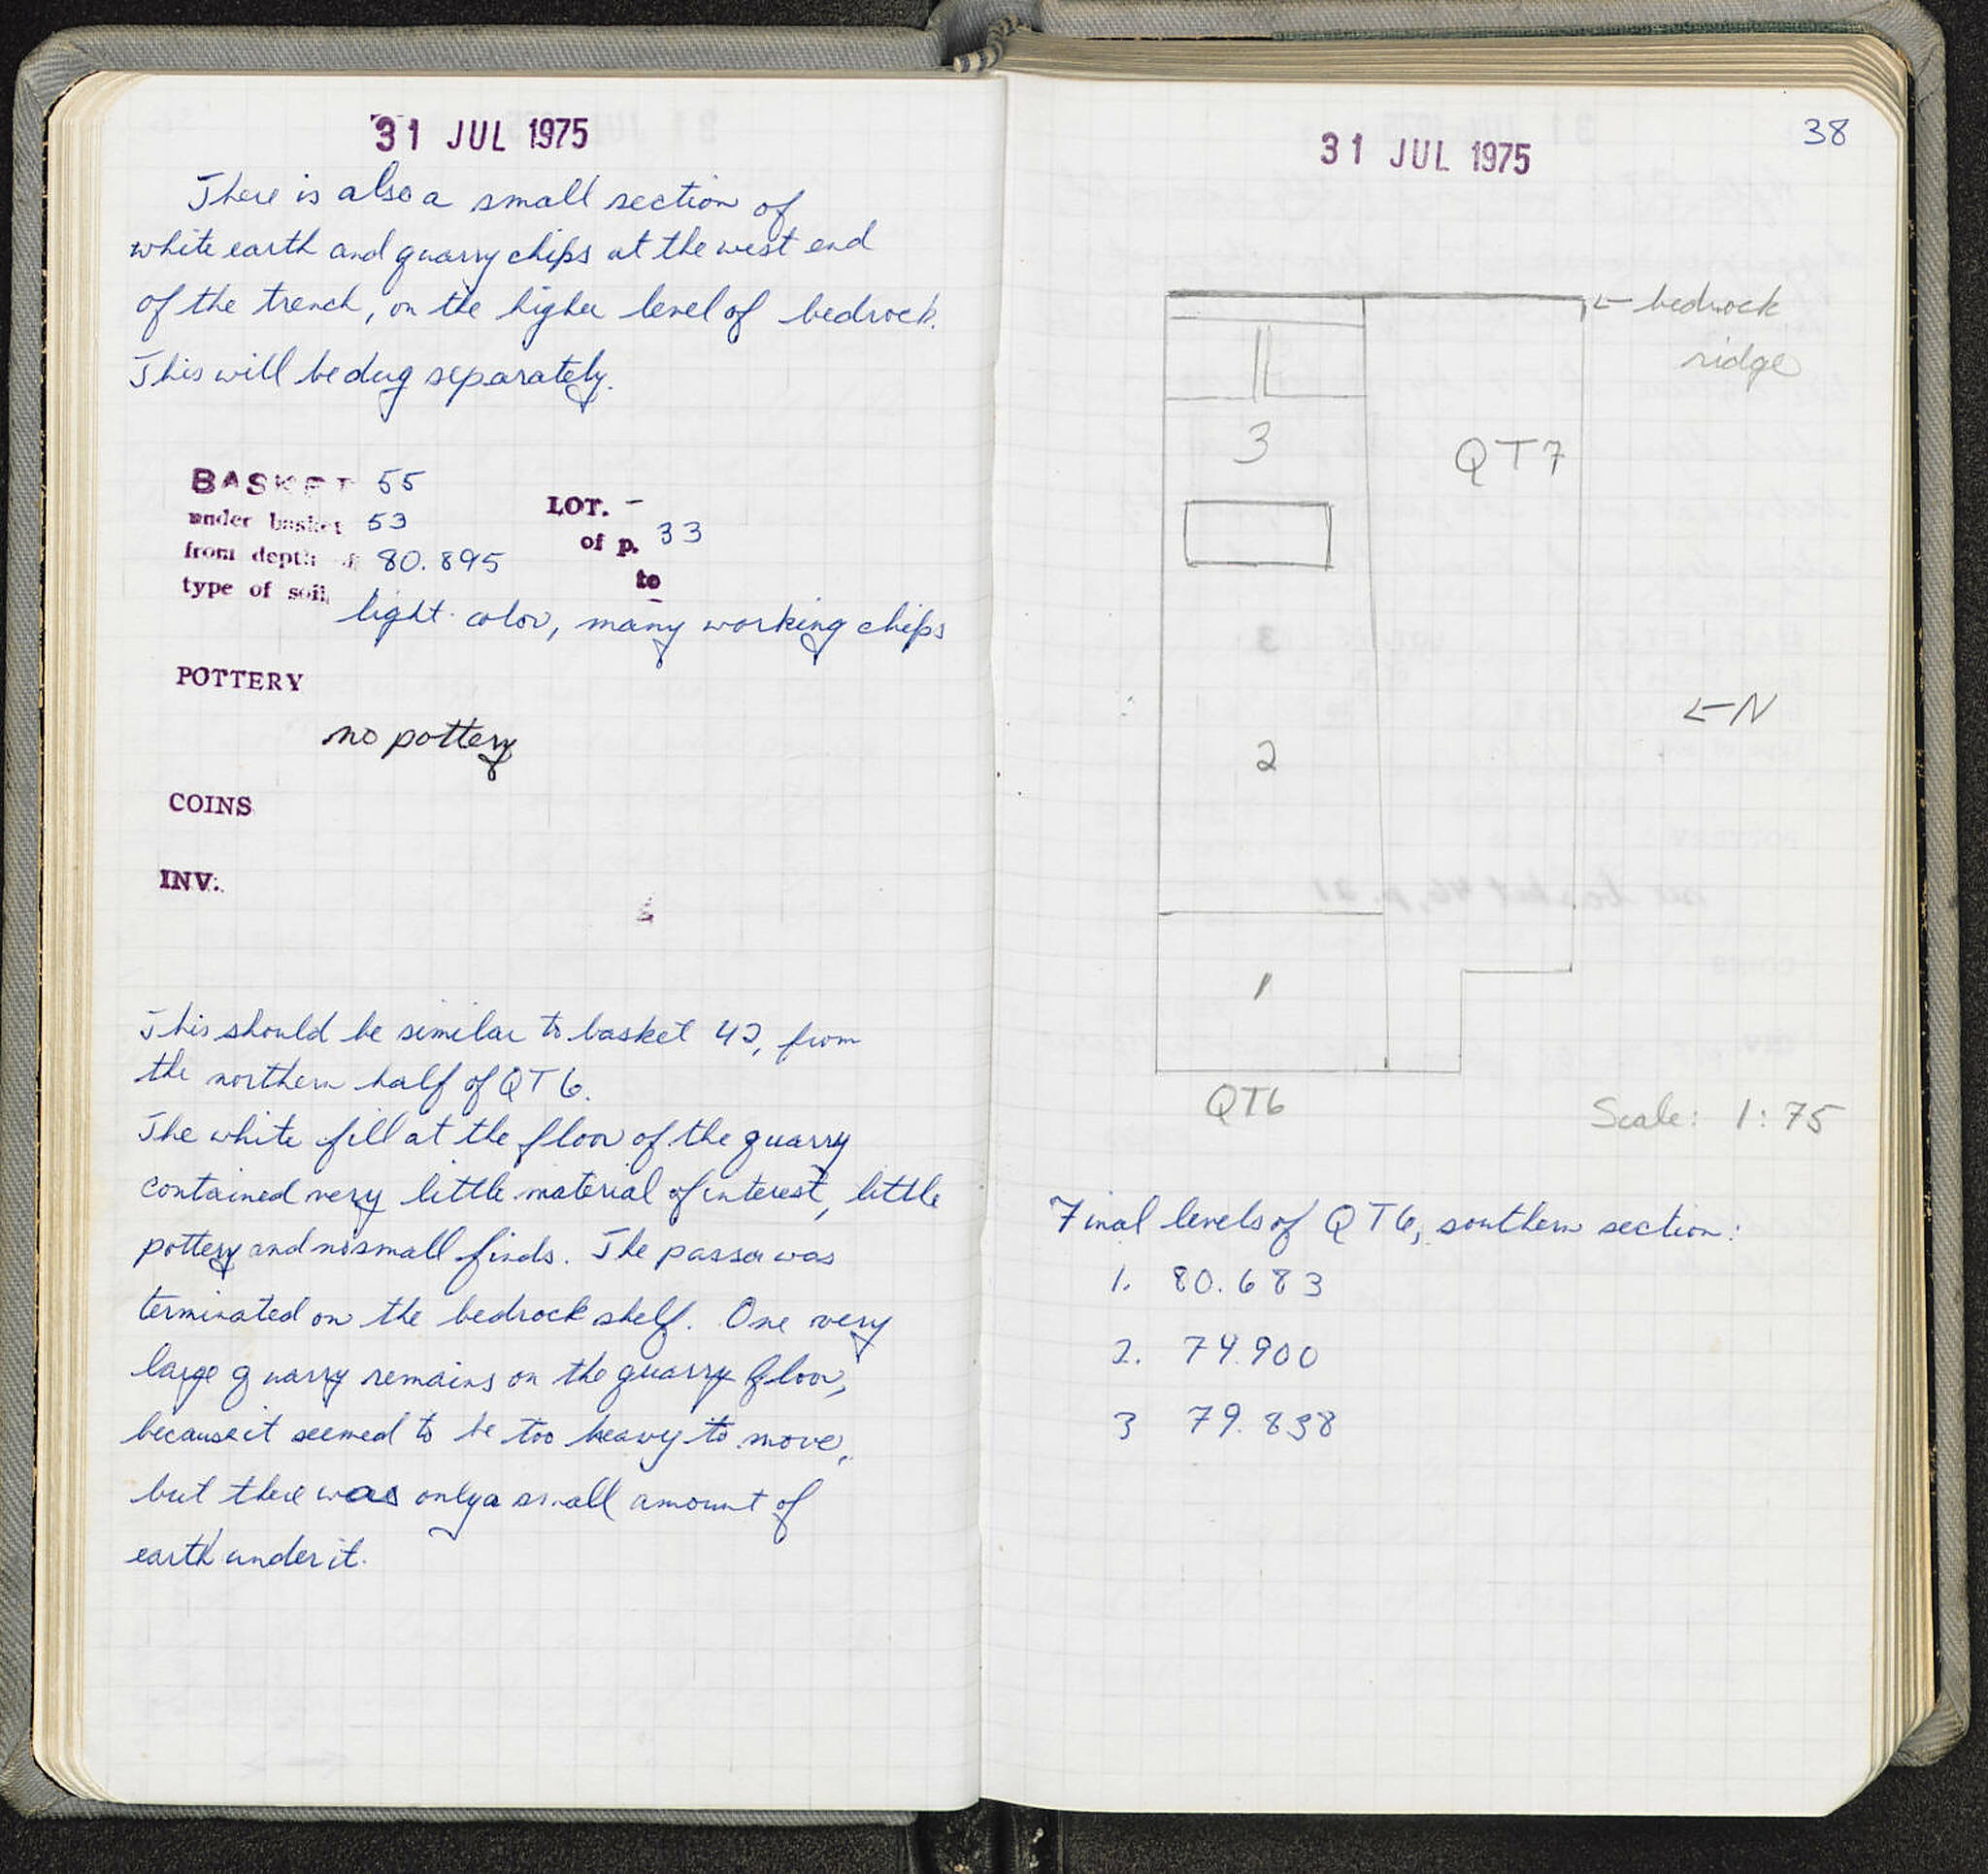 31 JUL 1975
There is also a small section of
white earth and quarry chips at the west end
of the trench, on the higher level of bedrock.
This will be dug separately.
BASKET 55
under basket 53
from depth of 80.895
type of soil light color, many working chips
LOT. -
of p. 33
to
-
POTTERY
no pottery
COINS
INV:
This should be similar to basket 42, from
the northern half of QT6.
The white fill at the floor of the quarry
contained very little material of interest, little
pottery and no small finds. The passa was
terminated on the bedrock shelf. One very
large quarry remains on the quarry floor,
because it seemed to be too heavy to move,
but there was only a small amount of
earth under it.
38
31 JUL 1975
← bedrock
ridge
3
QT7
3
2
← N
1
QT6
Scale: 1:75
Final levels of QT6, southern section:
1. 80.683
2. 79.900
3 79.838